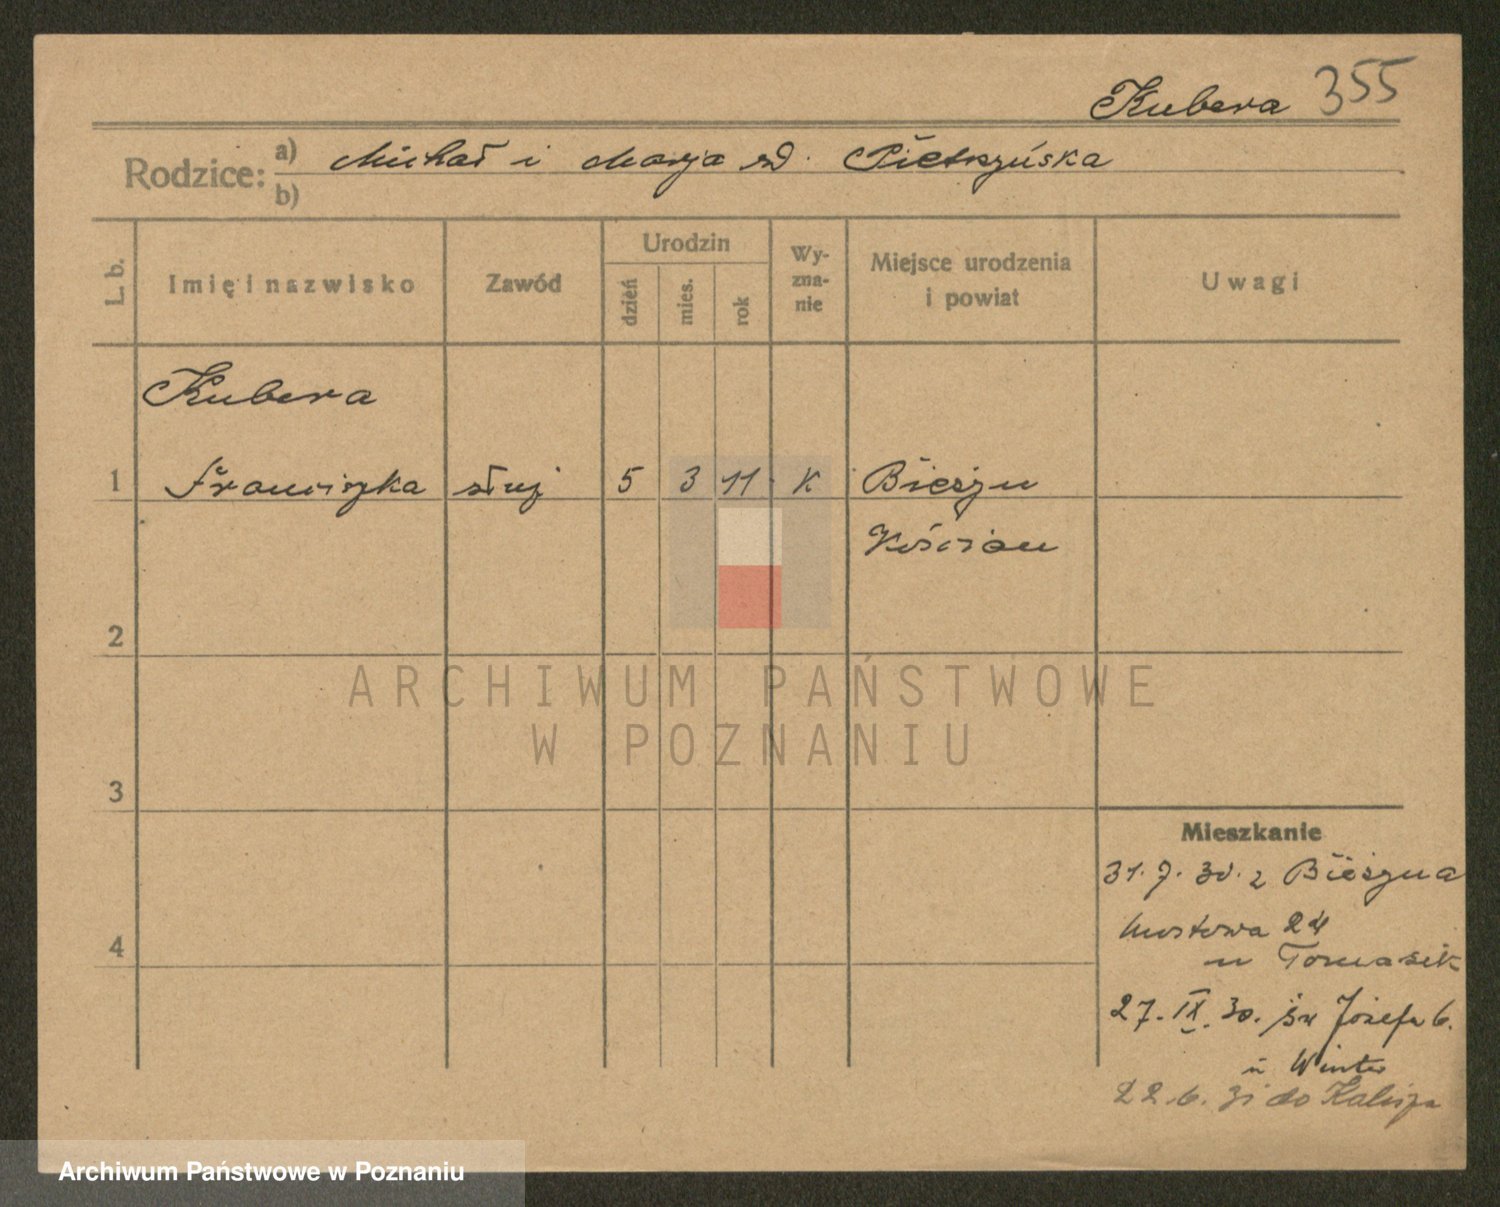 Kubera 355
Rodzice: a) Michał i Marja zd. Pietrzyńska
b)
L. b. Imię i nazwisko Zawód Urodzin dzień mies. rok Wy-zna-nie Miejsce urodzenia i powiat Uwagi
Kubera
1 Franciszka służ 5 3 11 K Bieżyn
Kościan
2
ARCHIWUM PAŃSTWOWE
W POZNANIU
3
Mieszkanie
31.7.30. z Bieżyna
Mostowa 24
4
u Tomasik
27. IX. 30. św Józefa 6.
u Winter
22.6.31 do Kalisza
Archiwum Państwowe w Poznaniu